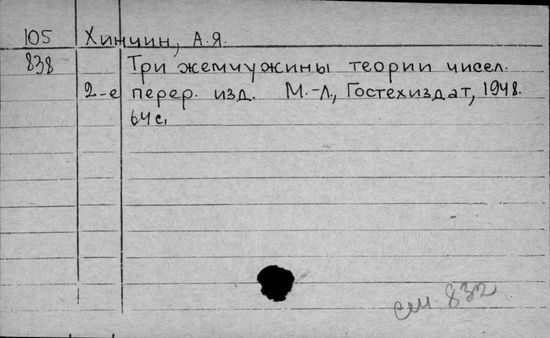 105 Хинчин, А.Я.
838 Три жемчужины теории чисел.
2-е перер. изд. М.-Л., Гостехиздат, 1948.
64 с.
см. 832